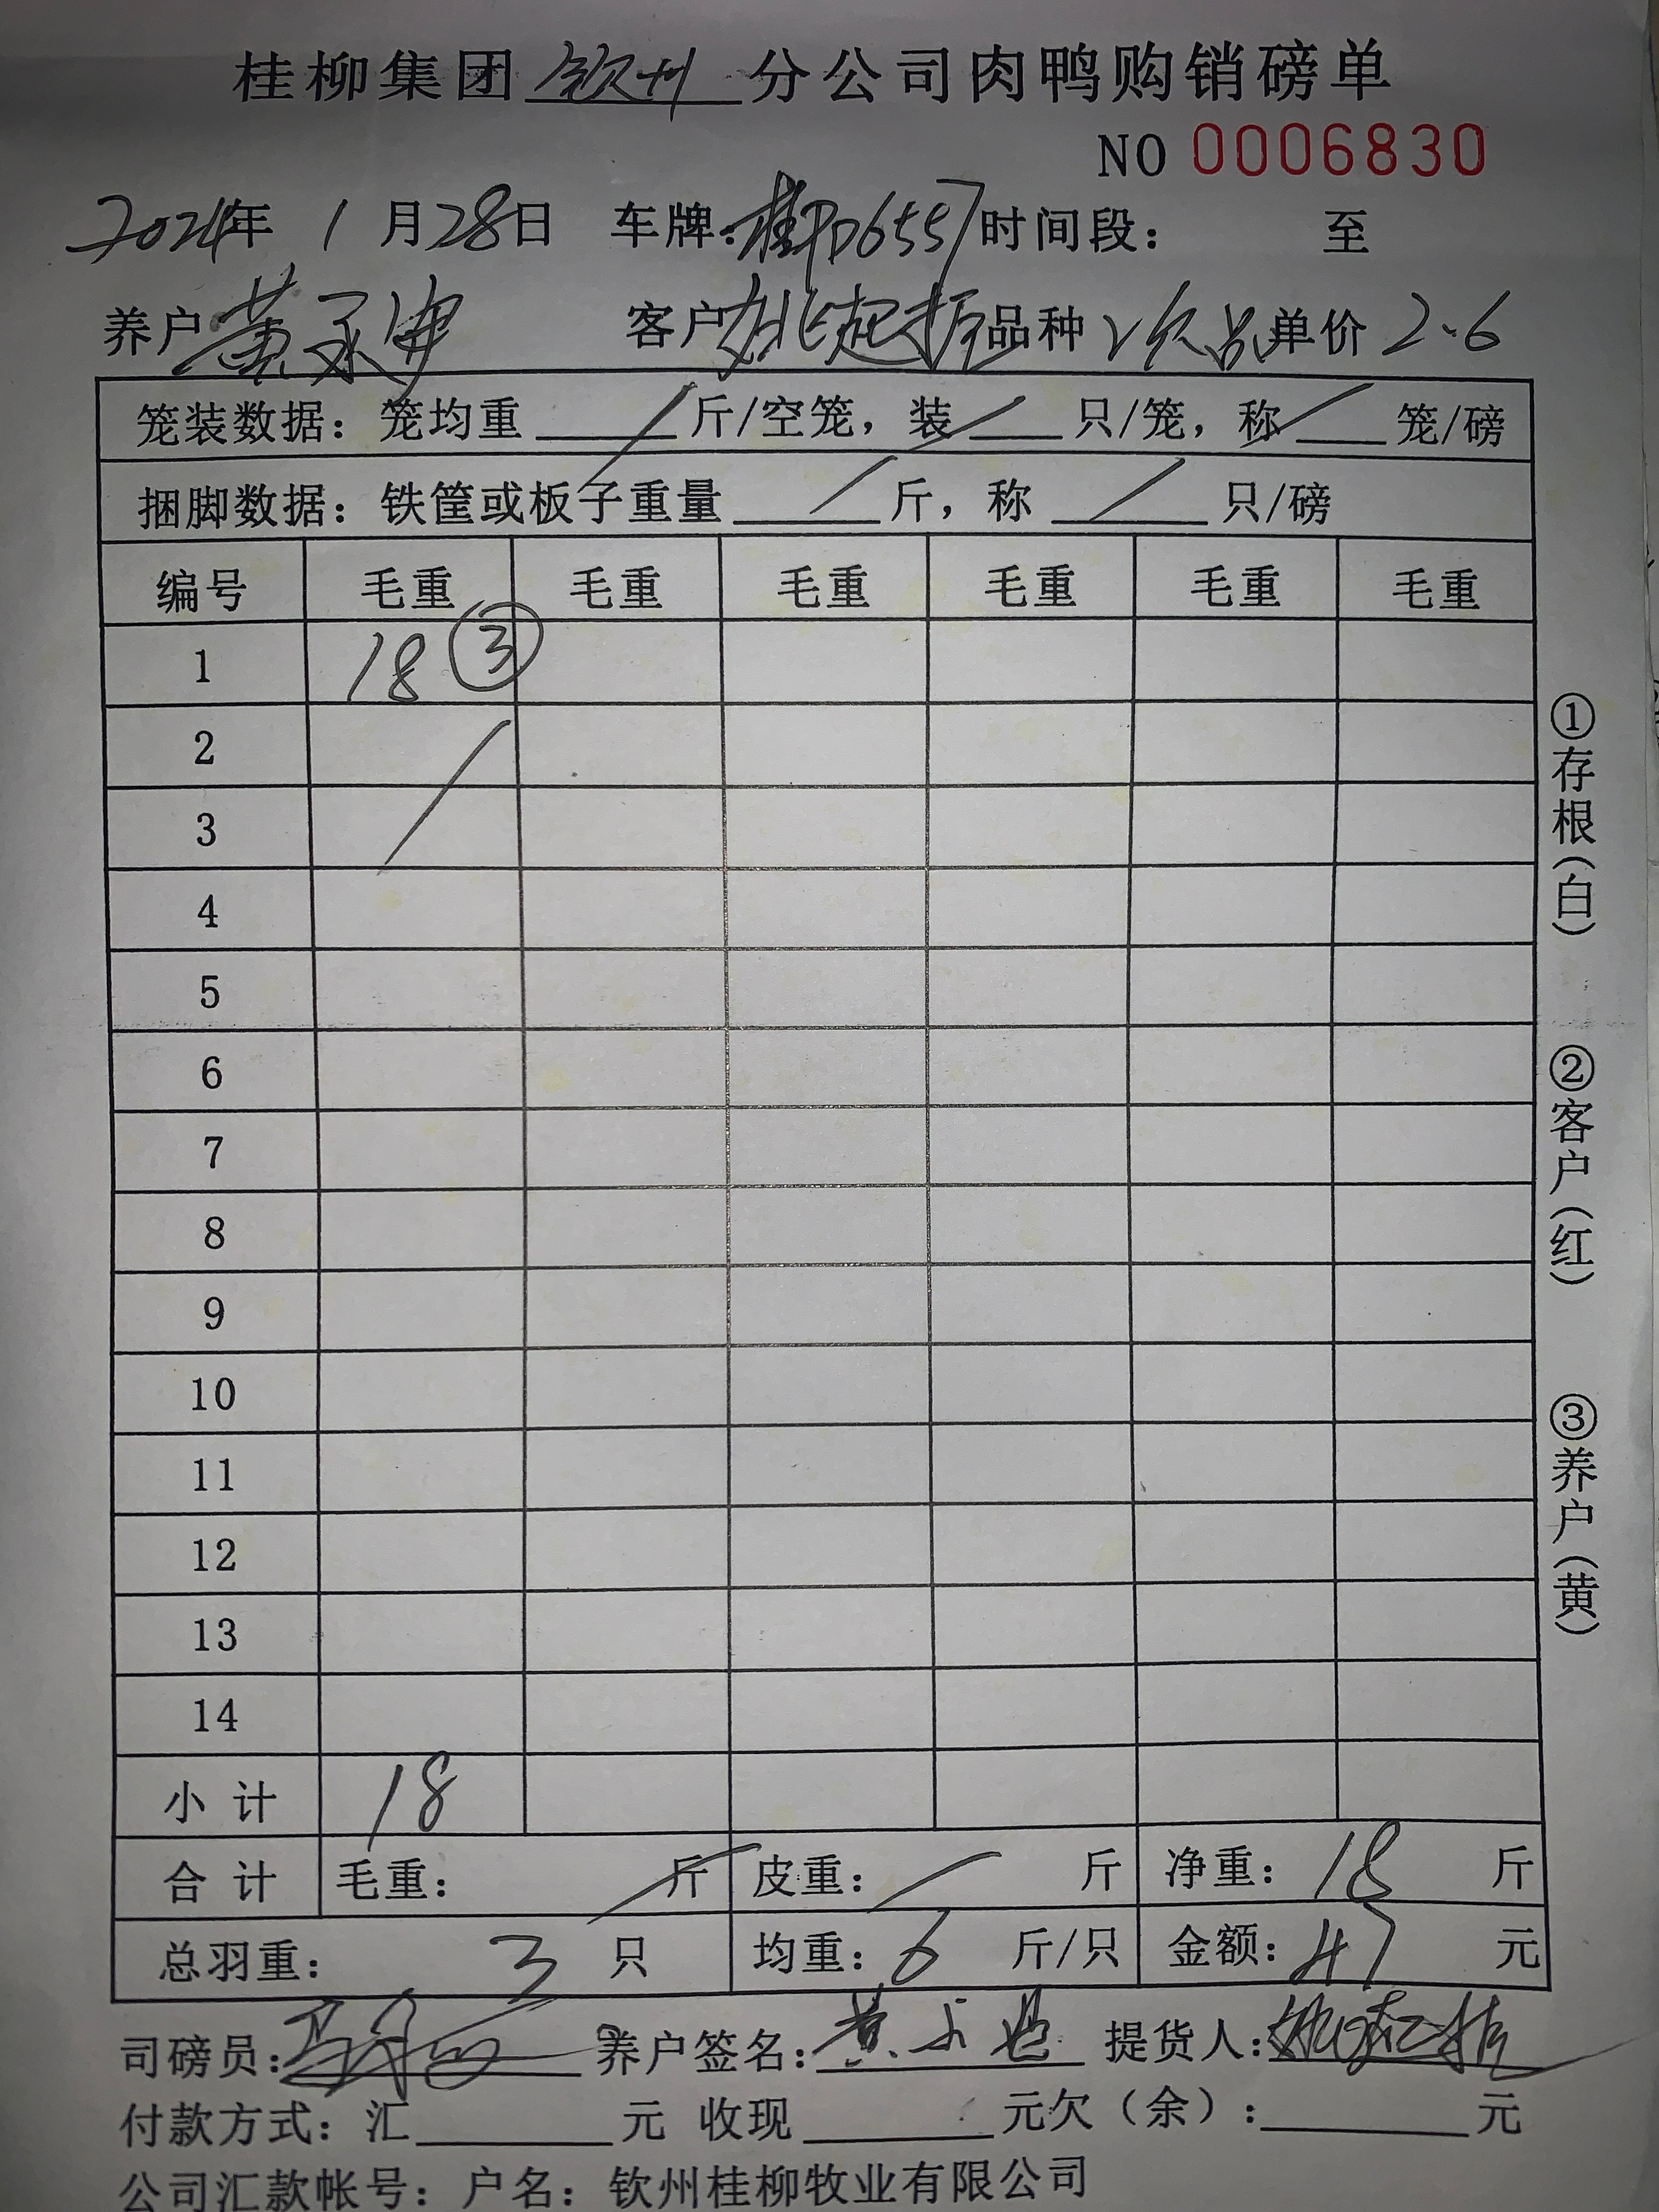 桂柳集团 钦州 分公司肉鸭购销磅单
NO 0006830
2024年 1 月28日 车牌:桂PD6557时间段: 至
养户 黄永 客户 姚起振 品种 次品 单价 2.6
笼装数据:笼均重 / 斤/空笼,装 / 只/笼,称 / 笼/磅
捆脚数据:铁筐或板子重量 / 斤,称 / 只/磅
编号 毛重 毛重 毛重 毛重 毛重 毛重
1 18 ③
2 /
3
4
5
6
7
8
9
10
11
12
13
14
小计 18
合计 毛重: / 斤 皮重: / 斤 净重: 18 斤
总羽重: 3 只 均重: 6 斤/只 金额: 47 元
司磅员: 养户签名:黄永 提货人:姚起振
付款方式:汇 元 收现 元欠(余): 元
公司汇款帐号:户名:钦州桂柳牧业有限公司
①存根(白)
②客户(红)
③养户(黄)